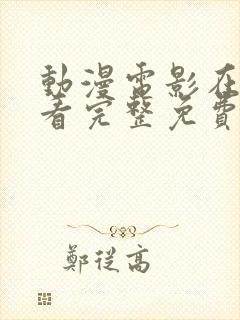 動漫電影在
看完整免費
鄭從高